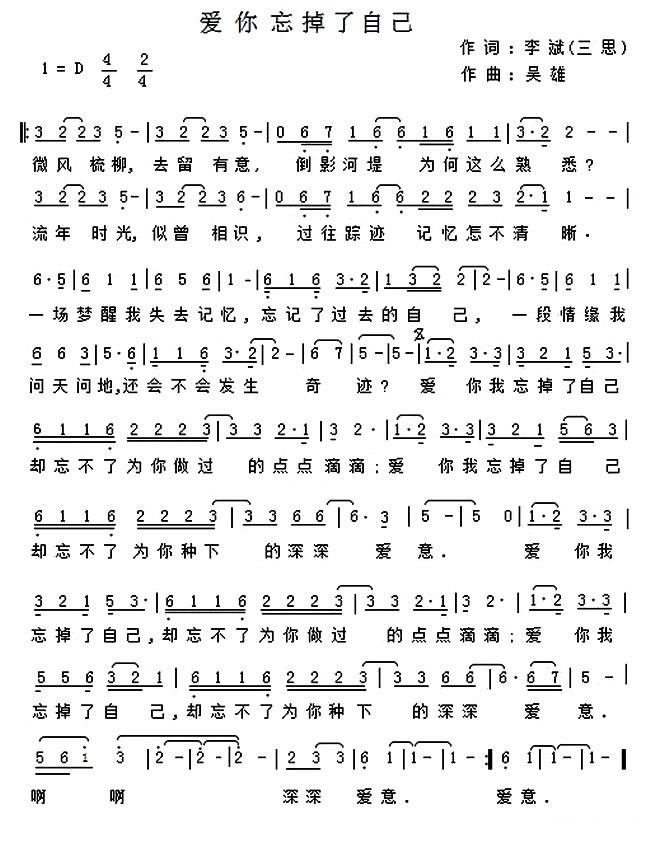 爱你忘掉了自己
作词：李斌(三思)
1=D 4/4 2/4
作曲：吴雄
‖:3 223 5-|3 223 5-|0 67 16 616 1|3·2 2--|
微风 梳柳, 去留 有意, 倒影河堤 为何这么熟 悉?
3 223 5-|3 22 6-|0 67 16 622 23|2·1 1--|
流年 时光, 似曾 相识, 过往踪迹 记忆怎不清 晰.
6·5|6 1 1|6 5 6|1-|6 1 6 3·2|1 322|2-|6·5|6 1 1|
一场梦醒我失去记忆, 忘记了过去的自 己, 一段情缘我
6 6 3|5·6|1 1 6 3·2|2-|6 7|5-|5-|1·2 3·3|3 2 1 5 3·|
问天问地,还会不会发生 奇 迹? 爱 你我忘掉了自己
6116 2223|33 2·1|3 2·|1·2 3·3|321 563|
却忘不了为你做过 的点点滴滴;爱 你我忘掉了自 己
6116 2223|3366|6·3|5-|5 0|1·2 3·3|
却忘不了 为你种下 的深深 爱 意. 爱 你我
3 2 1 5 3·|6116 2223|33 2·1|3 2·|1·2 3·3|
忘掉了自己,却忘不了为你做过 的点点滴滴;爱 你我
5 5 6 3 2 1|6116 2223|3366|6·67|5-|
忘掉了自 己,却忘不了为你种下 的深深 爱 意.
5 6 i 3|2-|2-2|2 3 3|6 1|1-|1-:‖6 1|1-|1-‖
啊 啊 深深 爱意. 爱意.